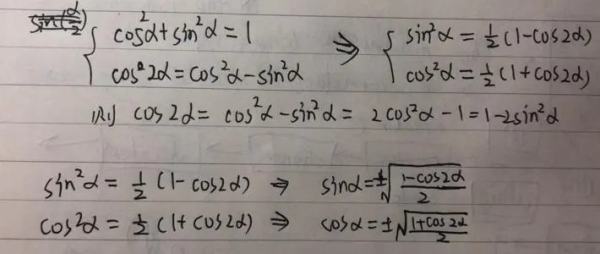 sin(α/2)
{ cos²α+sin²α=1 ⇒ { sin²α = 1/2 (1-cos2α)
cos²2α=cos²α-sin²α cos²α=1/2 (1+cos2α)
则 cos2α = cos²α-sin²α = 2cos²α-1=1-2sin²α
sin²α = 1/2 (1-cos2α) ⇒ sinα=±√((1-cos2α)/2)
cos²α = 1/2 (1+cos2α) ⇒ cosα=±√((1+cos2α)/2)